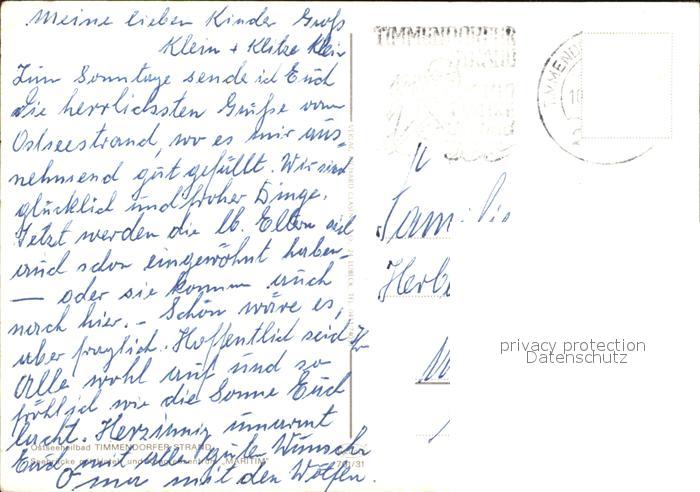 Meine lieben Kinder Groß
Klein + Klitze Klein
Zum Sonntage sende ich Euch
die herrlichsten Grüße vom
Ostseestrand, wo es mir aus-
nehmend gut gefällt. Wir sind
glücklich und froher Dinge.
Jetzt werden die lb. Eltern sich
auch schon eingewöhnt haben
— oder sie kommen auch
nach hier. – Schön wäre es,
aber fraglich. Hoffentlich seid Ihr
Alle wohl auf und so
fröhlich wie die Sonne Euch
lacht. Herzinnig umarmt
Euch mit allen guten Wünschen
Oma mit den Wölfen.
Ostseeheilbad TIMMENDORFER STRAND
"MARITIM"
TIMMENDORFER
TIMMENDO
Familie
Herbe
privacy protection
Datenschutz